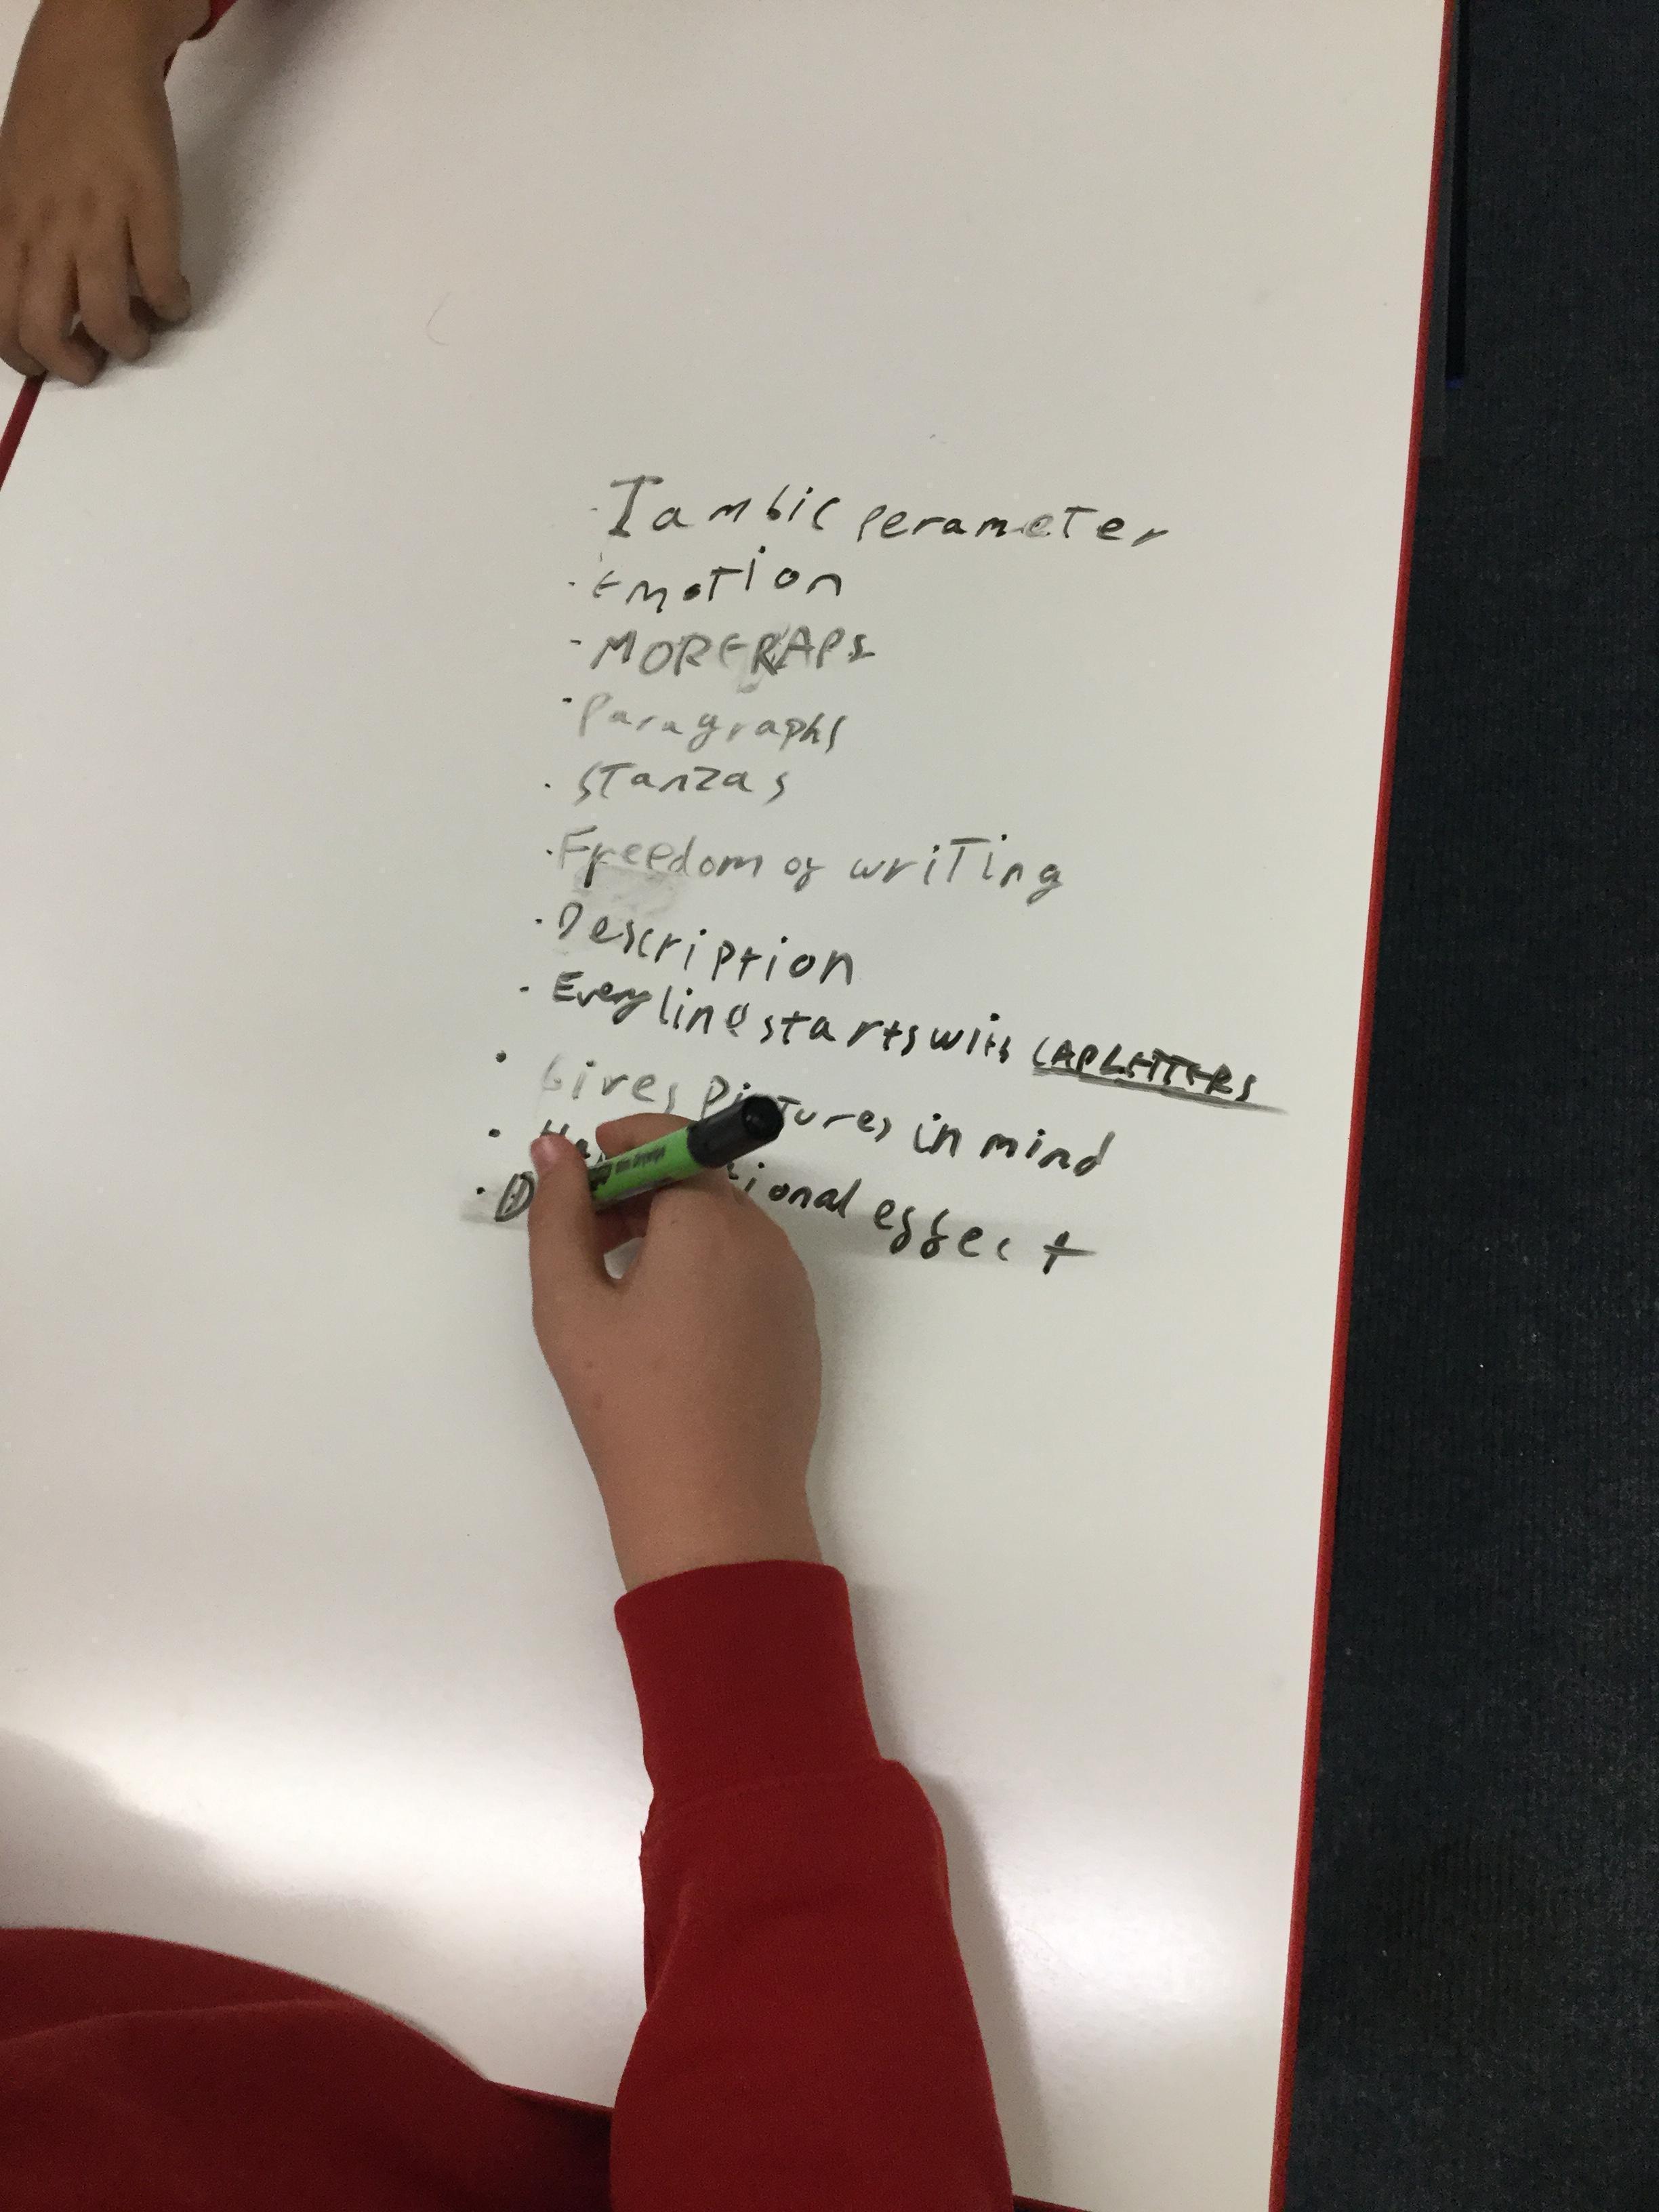 · Iambic perameter
· Emotion
- MORE RAPS
· Paragraphs
· Stanzas
· Freedom of writing
· Description
· Every line starts with CAP LETTERS
· Gives pictures in mind
· Has tional effect
· D